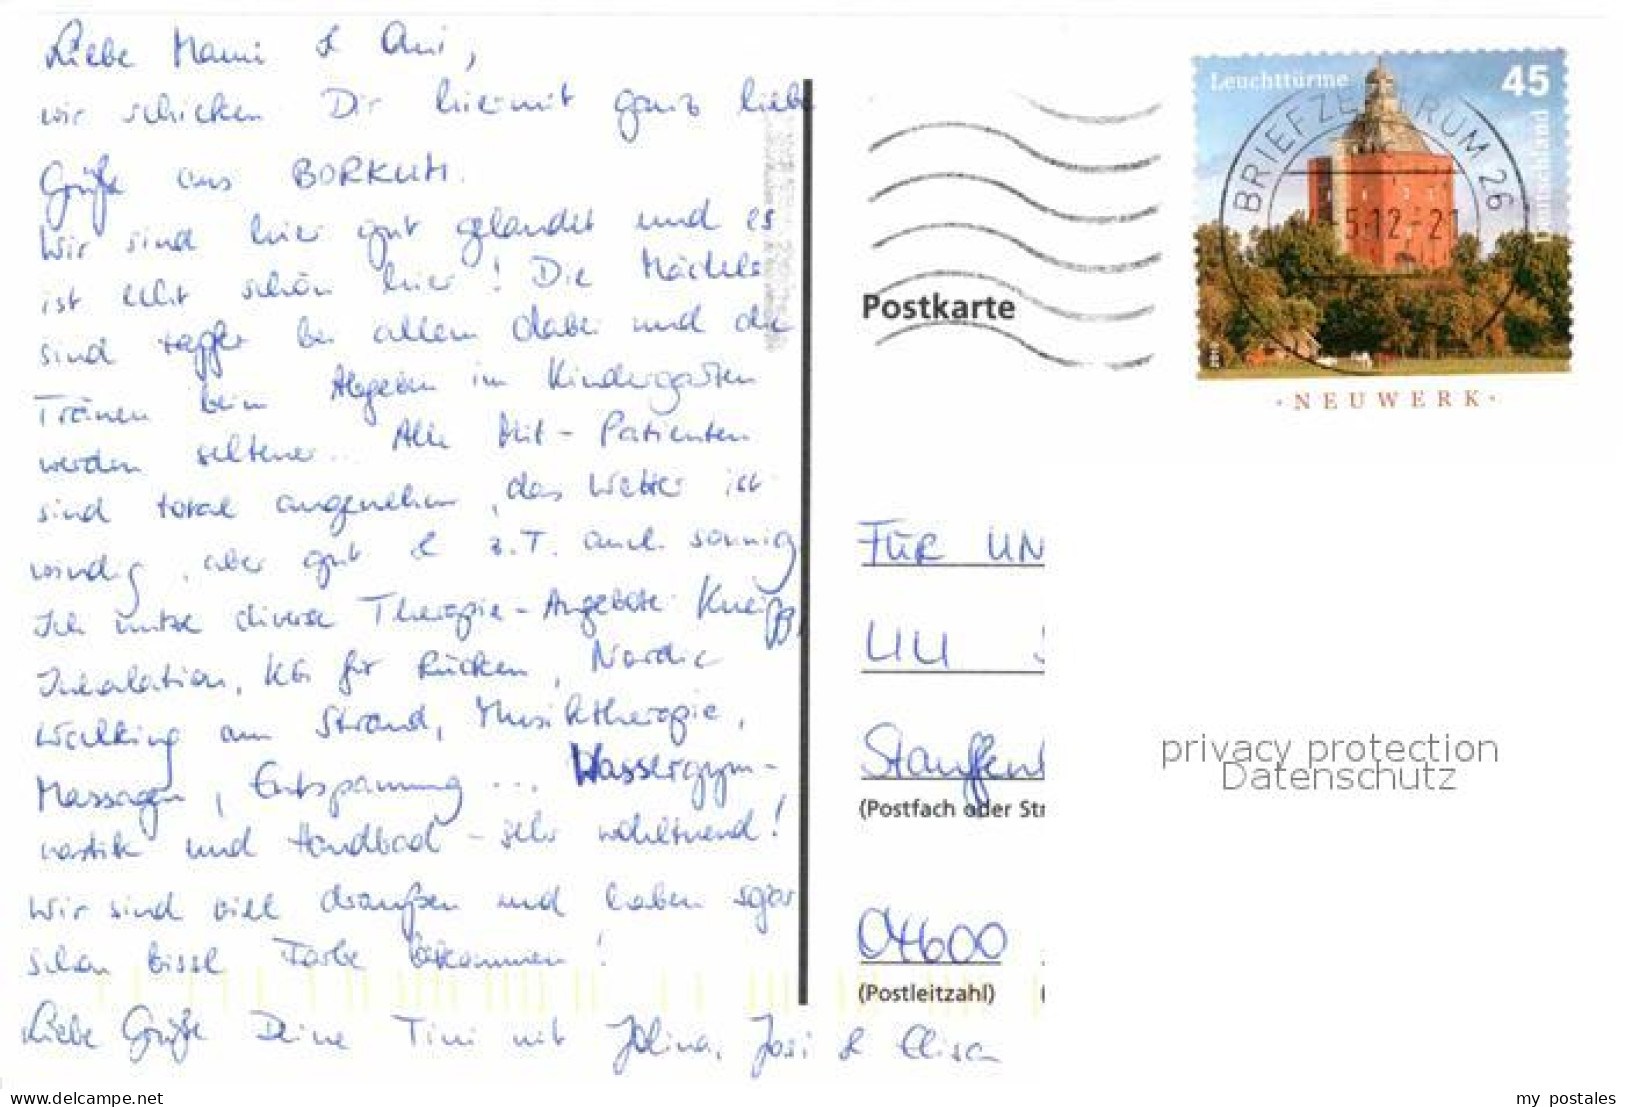 Liebe Mami & Omi,
wir schicken Dir hiermit ganz liebe
Grüße aus BORKUM.
Wir sind hier gut gelandet und es
ist echt schön hier! Die Mädels
sind tapfer bei allem dabei und die
Tränen beim Abgeben im Kindergarten
werden seltener... Alle Mit-Patienten
sind total angenehm, das Wetter ist
windig, aber gut & z.T. auch sonnig.
Ich nutze diverse Therapie-Angebote: Kneipp,
Inhalation, KG für Rücken, Nordic
Walking am Strand, Musiktherapie,
Massagen, Entspannung... Wassergym-
nastik und Handbad - sehr wohltuend!
Wir sind viel draußen und haben sogar
schon bissl Farbe bekommen!
Liebe Grüße Deine Tini mit Jolina, Josi & Elisa
Leuchttürme 45
Deutschland
BRIEFZENTRUM 26
-5.12.-21
2010
·NEUWERK·
Postkarte
FÜR UN
Stauffen
(Postfach oder Str
04600
(Postleitzahl)
privacy protection
Datenschutz
www.delcampe.net
my_postales